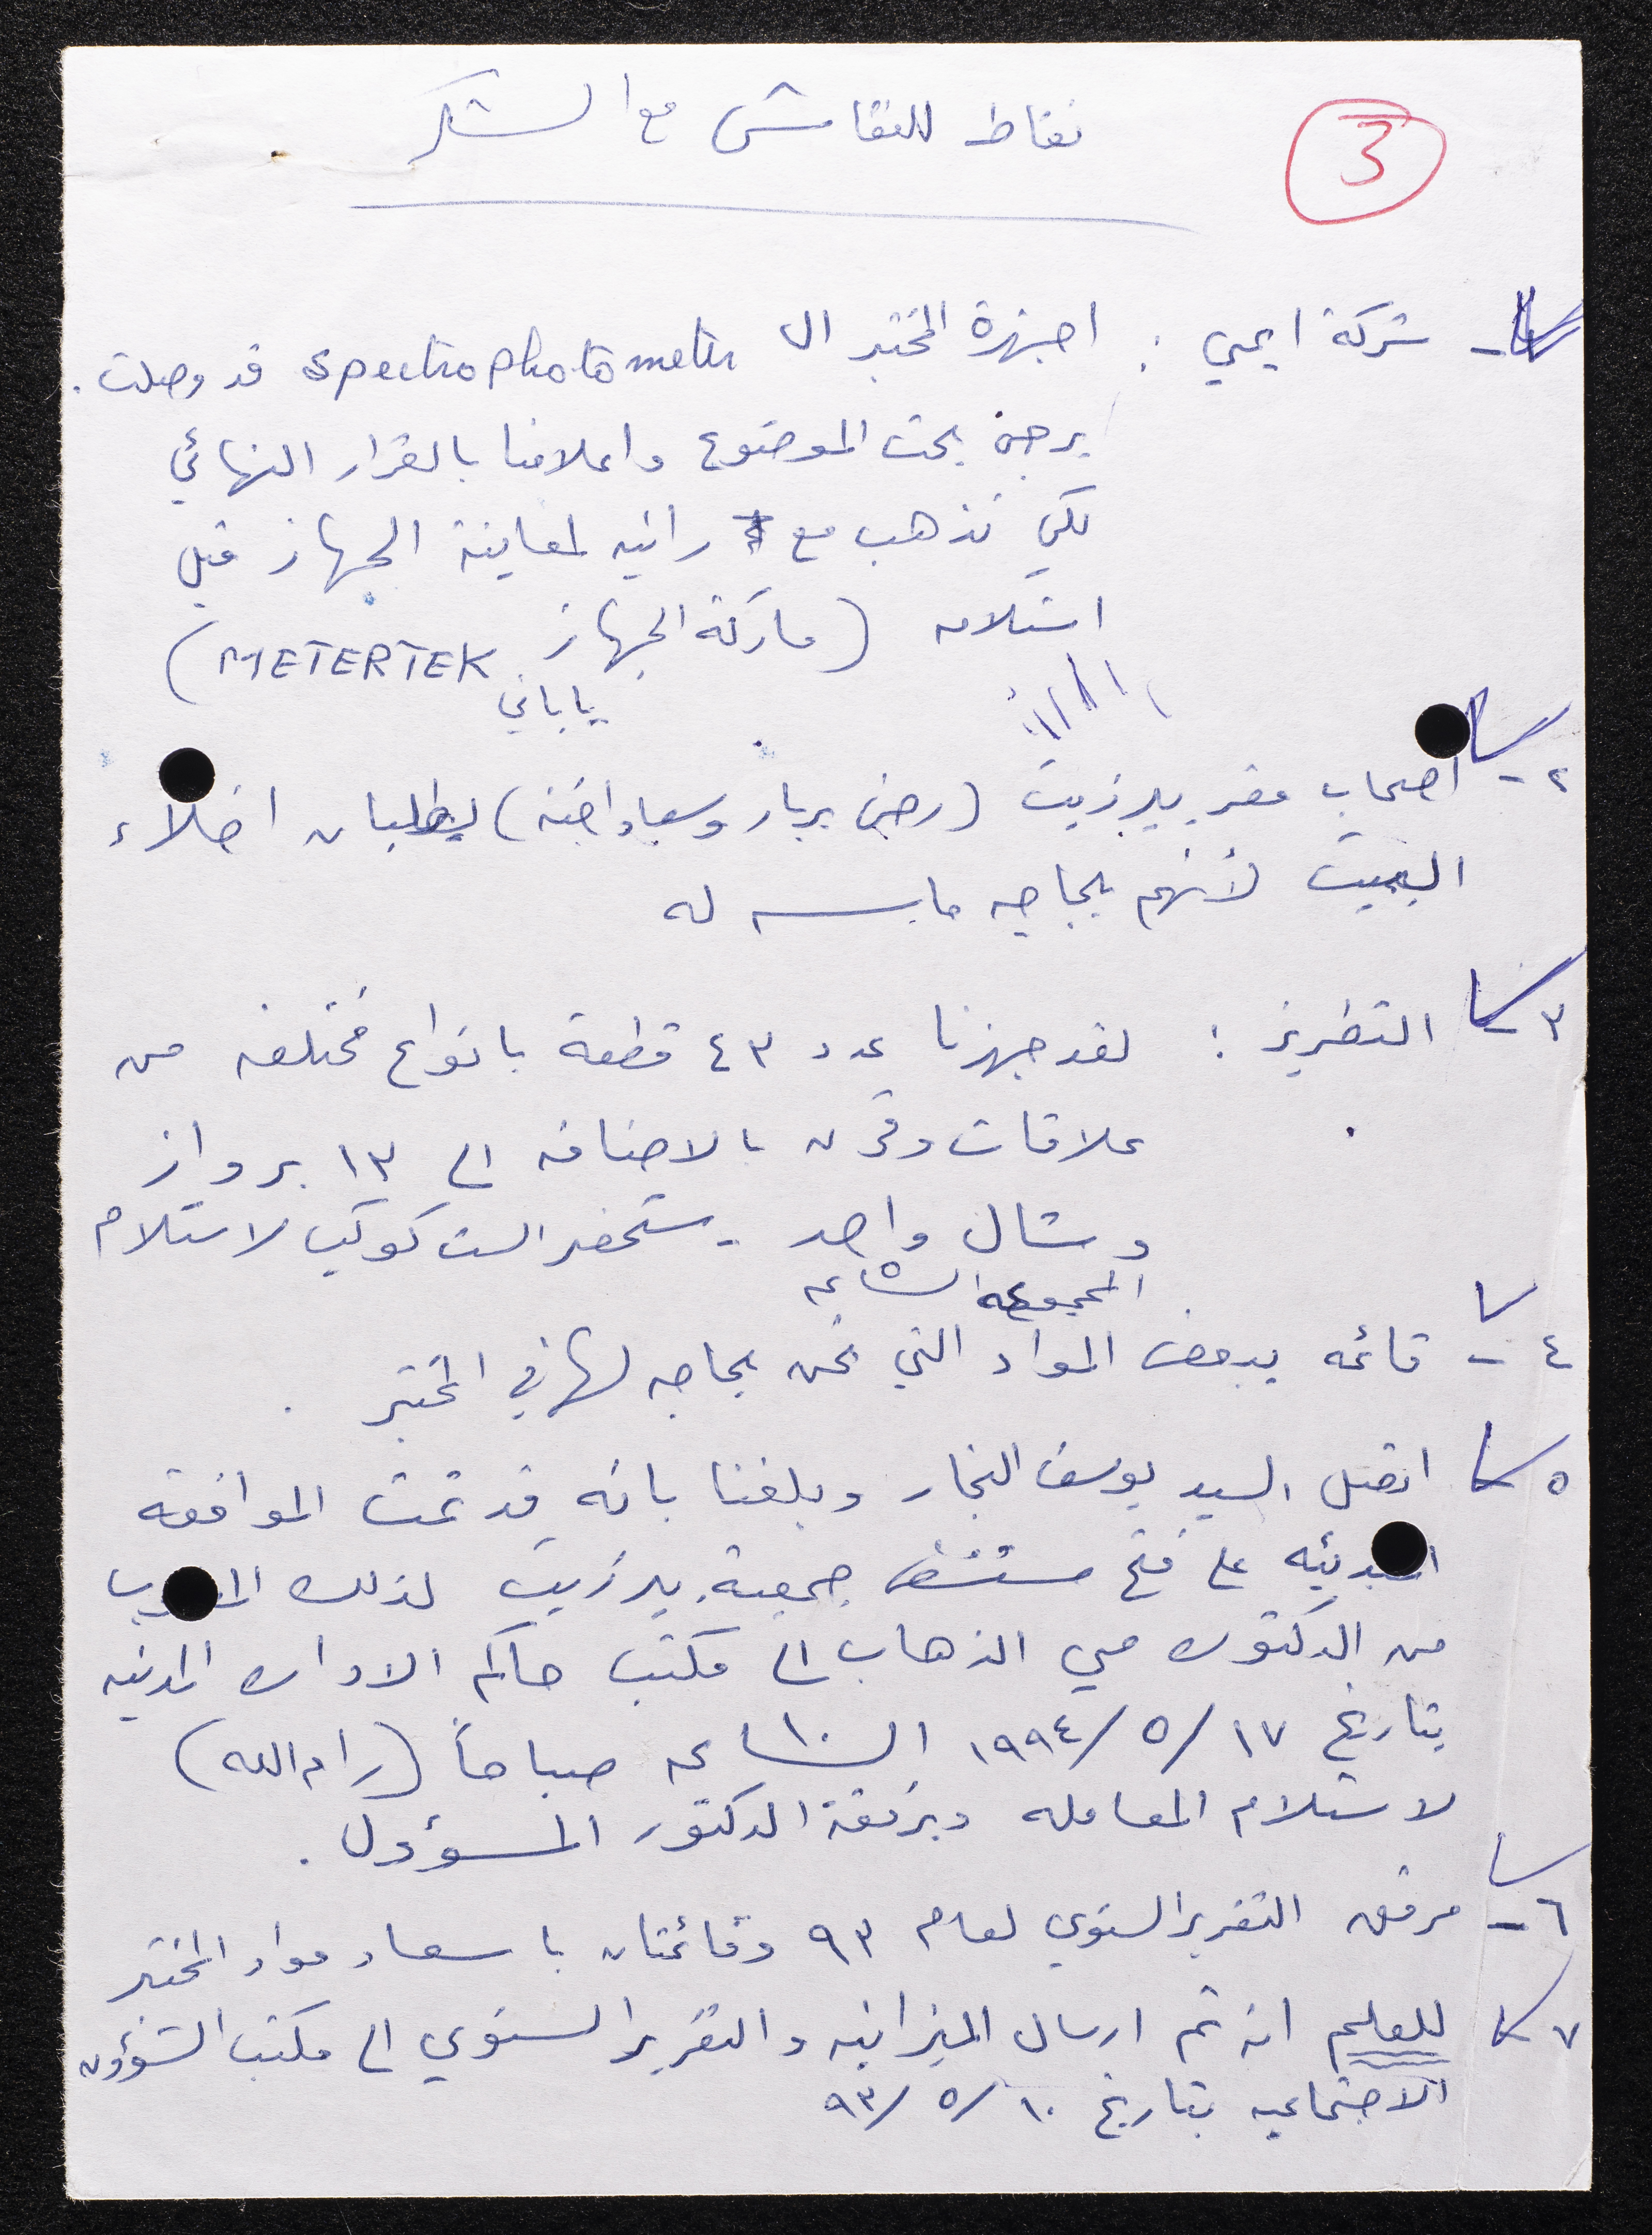 3
نقاط للنقاش مع الشكر
١- شركة ايمي : اجهزة المختبر ال spectrophotometer قد وصلت .
يرجى بحث الموضوع واعلامنا بالقرار النهائي
لكي نذهب مع رانيه لمعاينة الجهاز قبل
استلامه (ماركة الجهاز METERTEK)
ياباني
٢- اصحاب مقر بيرزيت (رضى بربار وسعاد اخته) يطلبان اخلاء
البيت لأنهم بحاجه ماسه له
٣- التطريز : لقد جهزنا عدد ٤٣ قطعة بانواع مختلفه من
علاقات وقرن بالاضافه الى ١٣ برواز
وشال واحد - ستحضر الست كوكب لاستلام
المجموعه الساعه ٥
٤- قائمه ببعض المواد التي نحن بحاجه لها في المختبر .
٥- اتصل السيد يوسف النجار وبلغنا بانه قد تمت الموافقه
المبدئيه على فتح مستشفى جمعية بيرزيت لذلك المطلوب
من الدكتوره مي الذهاب الى مكتب حاكم الاداره المدنيه
بتاريخ ١٧/٥/١٩٩٤ الساعه ١٠ صباحاً (رام الله)
لاستلام المعامله وبرفقة الدكتور المسؤول .
٦- مرفق التقرير السنوي لعام ٩٣ وقائمتان باسعار مواد المختبر
٧- للعلم انه تم ارسال الميزانيه والتقرير السنوي الى مكتب الشؤون
الاجتماعيه بتاريخ ١٠/٥/٩٣